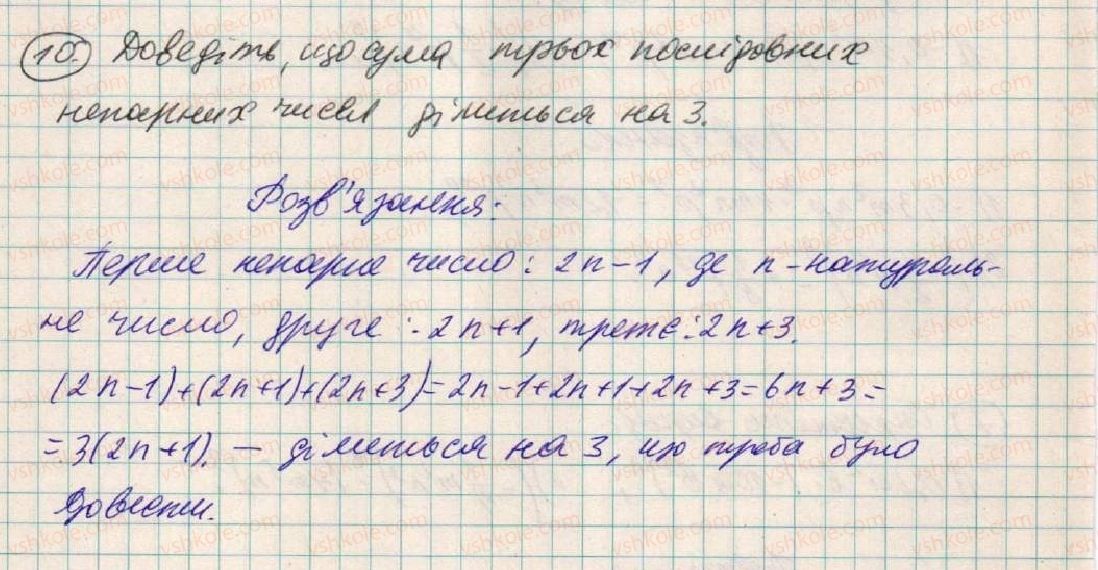 10. Доведіть, що сума трьох послідовних
непарних чисел ділиться на 3.
Розв'язання:
Перше непарне число: 2n-1, де n - натураль-
не число, друге: - 2n+1, третє: 2n+3.
(2n-1)+(2n+1)+(2n+3)=2n-1+2n+1+2n+3=6n+3=
=3(2n+1). - ділиться на 3, що треба було
довести.